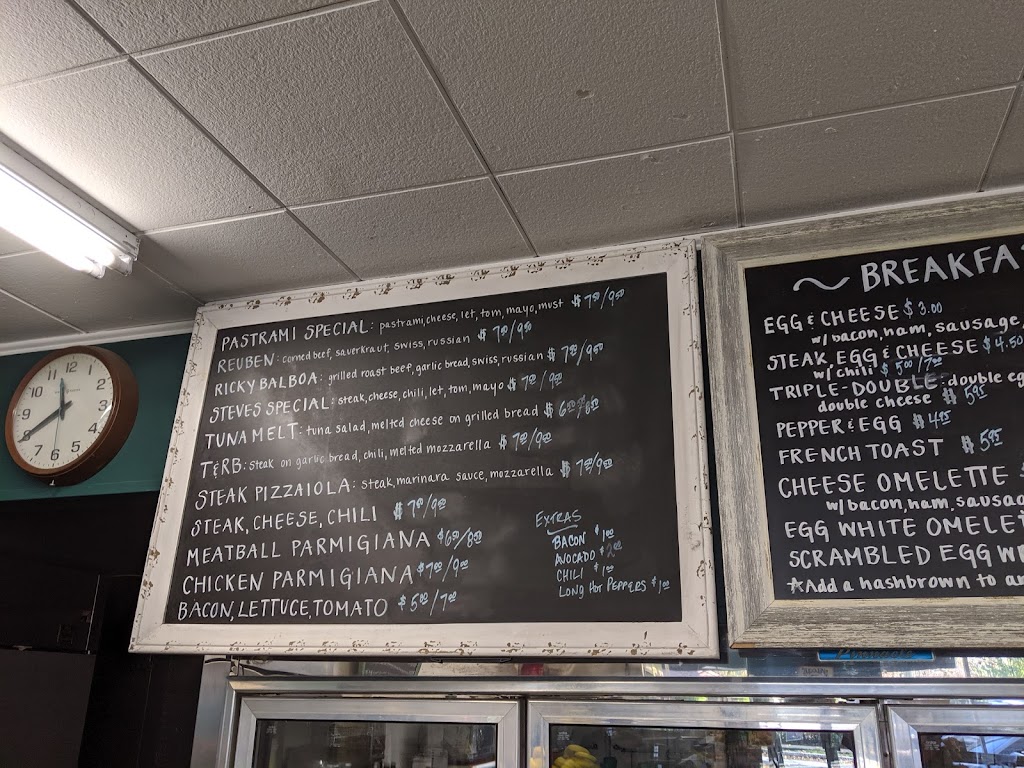 PASTRAMI SPECIAL: pastrami, cheese, let, tom, mayo, must $7.50/9.50
REUBEN: corned beef, sauerkraut, swiss, russian $7.00/9.00
RICKY BALBOA: grilled roast beef, garlic bread, swiss, russian $7.00/9.00
STEVES SPECIAL: steak, cheese, chili, let, tom, mayo $7.00/9.00
TUNA MELT: tuna salad, melted cheese on grilled bread $6.00/8.00
T&RB: steak on garlic bread, chili, melted mozzarella $7.00/9.00
STEAK PIZZAIOLA: steak, marinara sauce, mozzarella $7.00/9.00
STEAK, CHEESE, CHILI $7.00/9.00
MEATBALL PARMIGIANA $6.00/8.00
CHICKEN PARMIGIANA $7.00/9.00
BACON, LETTUCE, TOMATO $5.00/7.00
EXTRAS
BACON $1.00
AVOCADO $2.00
CHILI $1.00
LONG HOT PEPPERS $1.00
~ BREAKFA
EGG & CHEESE $3.00
w/ bacon, ham, sausage,
STEAK, EGG & CHEESE $4.50
w/ chili $5.00/7.00
TRIPLE-DOUBLE: double eg
double cheese $5.95
PEPPER & EGG $4.95
FRENCH TOAST $5.95
CHEESE OMELETTE
w/ bacon, ham, sausa
EGG WHITE OMELET
SCRAMBLED EGG W
*Add a hashbrown to an
12
1
2
3
4
5
6
7
8
9
10
11